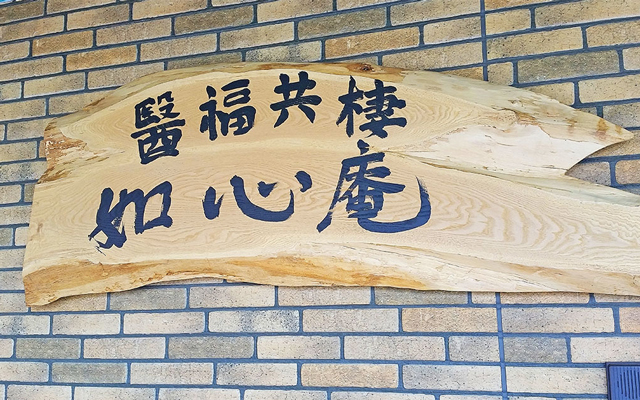 醫福共棲
如心庵